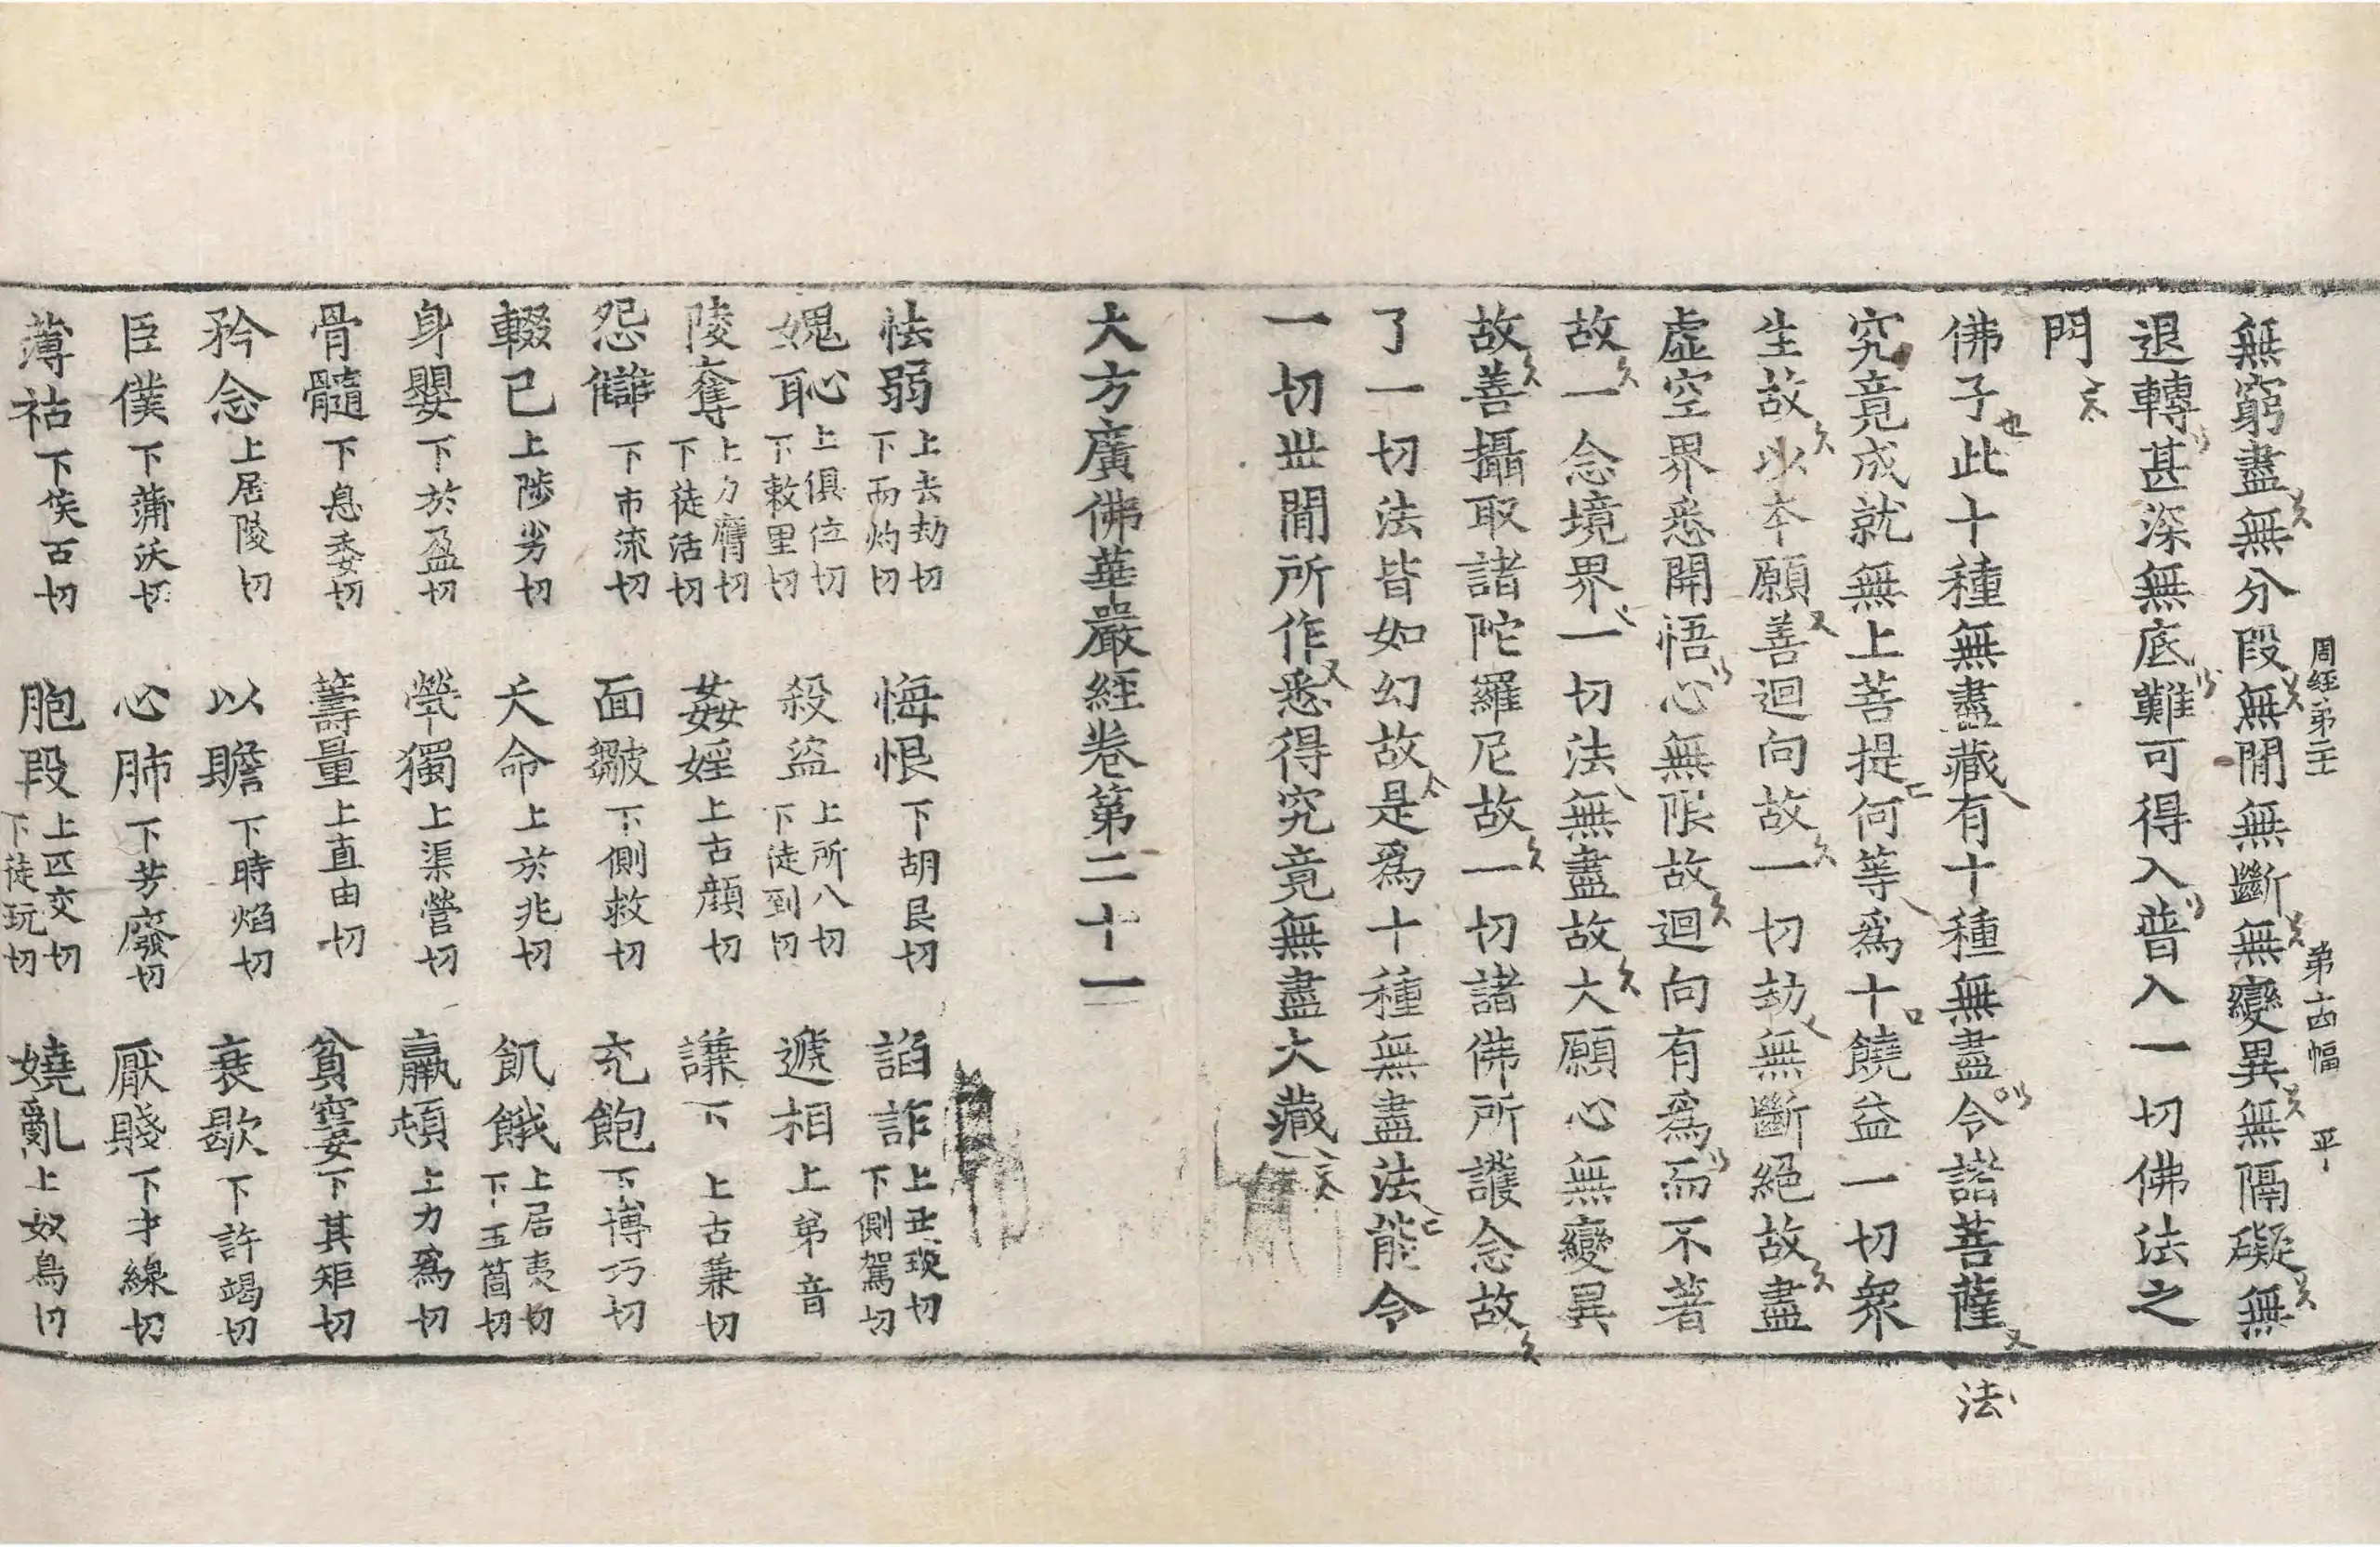 無窮盡無分段無閒無斷無變異無隔礙無
周經第二十一 第十四幅 平
退轉甚深無底難可得入普入一切佛法之
門
佛子此十種無盡藏有十種無盡令諸菩薩
法
究竟成就無上菩提何等爲十饒益一切衆
生故以本願善迴向故一切劫無斷絕故盡
虛空界悉開悟心無限故迴向有爲而不著
故一念境界一切法無盡故大願心無變異
故善攝取諸陀羅尼故一切諸佛所護念故
了一切法皆如幻故是爲十種無盡法能令
一切世閒所作悉得究竟無盡大藏
大方廣佛華嚴經卷第二十一
怯弱 上去劫切下而灼切 悔恨 下胡艮切 諂詐 上丑琰切下側駕切
媿恥 上俱位切下敕里切 殺盜 上所八切下徒到切 遞相 上弟音
陵奪 上力膺切下徒活切 姦婬 上古顏切 謙下 上古蒹切
怨讎 下市流切 面皺 下側救切 充飽 下博巧切
輟已 上陟劣切 夭命 上於兆切 飢餓 上居夷切下五箇切
身嬰 下於盈切 煢獨 上渠營切 羸頓 上力爲切
骨髓 下息委切 籌量 上直由切 貧窶 下其矩切
矜念 上居陵切 以贍 下時焰切 衰歇 下許竭切
臣僕 下蒲沃切 心肺 下芳廢切 厭賤 下才線切
薄祜 下侯古切 胞段 上匹交切下徒玩切 嬈亂 上奴鳥切